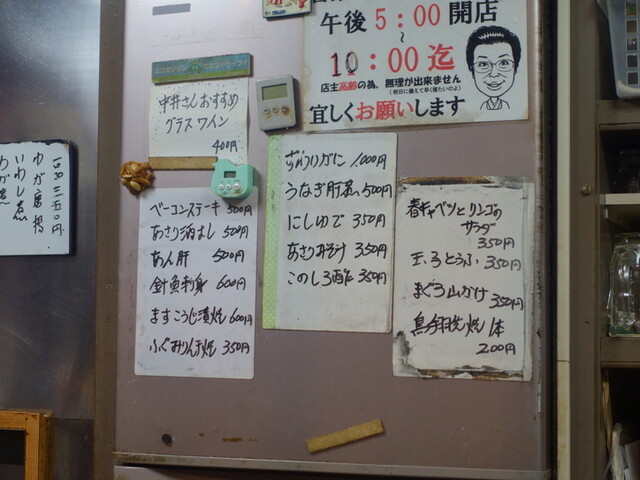 午後5:00開店
~
10:00迄
店主高齢の為、無理が出来ません
(明日に備えて早く寝たいのよ)
宜しくお願いします
中井さんおすすめ
グラスワイン
400円
ずわいがに 1000円
うなぎ肝煮 500円
にしゆで 350円
あさりみそ汁 350円
このしろ酢 350円
ベーコンステーキ 500円
あさり酒むし 500円
あん肝 500円
針魚刺身 600円
ますこうじ漬焼 600円
ふぐみりん干焼 350円
春キャベツとリンゴの
サラダ
350円
玉ろとうふ 350円
まぐろ山かけ 350円
200円